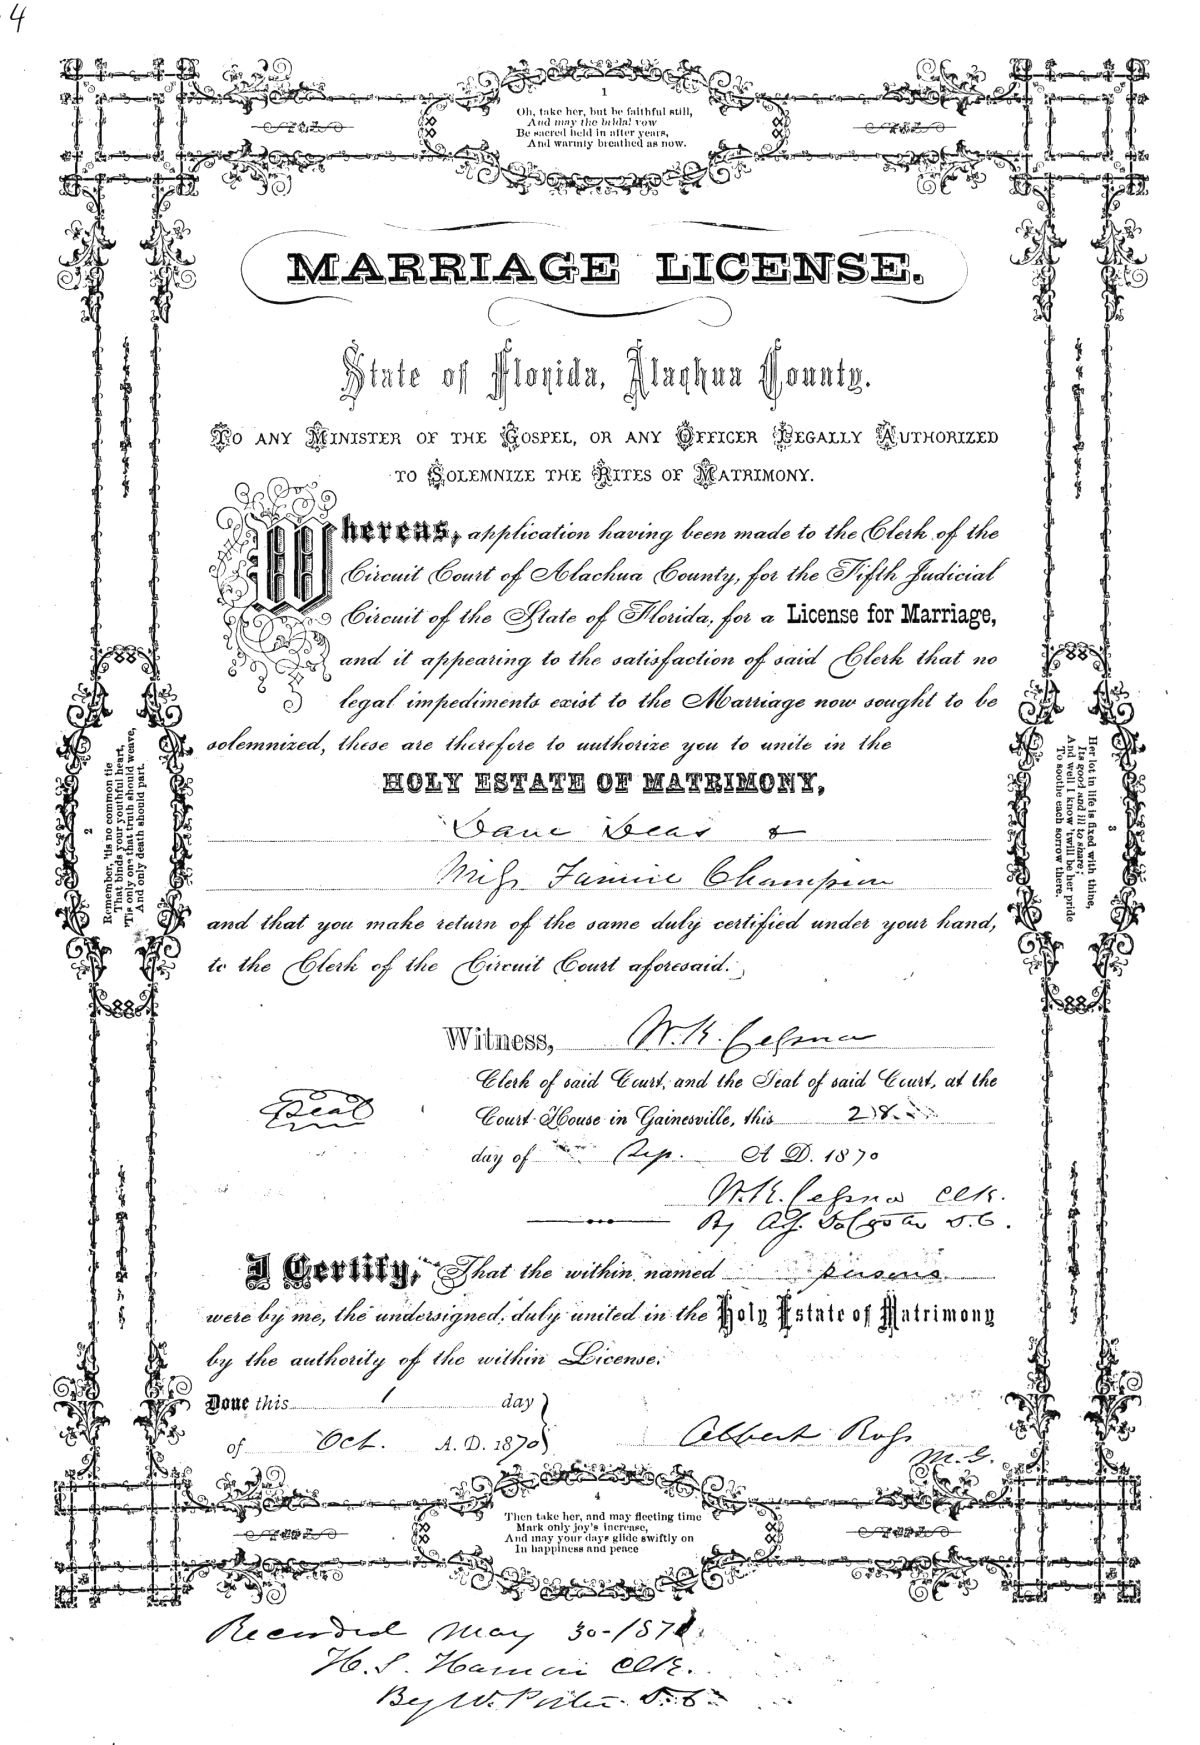 4
1
Oh, take her, but be faithful still,
And may the bridal vow
Be sacred held in after years,
And warmly breathed as now.
MARRIAGE LICENSE.
State of Florida, Alachua County.
TO ANY MINISTER OF THE GOSPEL, OR ANY OFFICER LEGALLY AUTHORIZED
TO SOLEMNIZE THE RITES OF MATRIMONY.
Whereas, application having been made to the Clerk of the
Circuit Court of Alachua County, for the Fifth Judicial
Circuit of the State of Florida, for a License for Marriage,
and it appearing to the satisfaction of said Clerk that no
legal impediments exist to the Marriage now sought to be
solemnized, these are therefore to authorize you to unite in the
HOLY ESTATE OF MATRIMONY,
Dave Deas &
Miss Fannie Champion
and that you make return of the same duly certified under your hand,
to the Clerk of the Circuit Court aforesaid.
2
Remember, 'tis no common tie
That binds your youthful heart,
'Tis only one that truth should weave,
And only death should part.
3
Her lot in life is fixed with thine,
Its good and ill to share;
And well I know 'twill be her pride
To soothe each sorrow there.
Witness, W. K. Cessna
Clerk of said Court, and the Seal of said Court, at the
Seal
Court House in Gainesville, this 28
day of Sep. A D. 1870
W. K. Cessna Clk.
By D. C.
I Certify, That the within named persons
were by me, the undersigned, duly united in the Holy Estate of Matrimony
by the authority of the within License.
Done this 1 day
of Oct. A. D. 1870
Albert Ross
M. G.
4
Then take her, and may fleeting time
Mark only joy's increase,
And may your days glide swiftly on
In happiness and peace
Recorded May 30-1871.
H. S. Harmon Clk.
By W. Porter D. C.